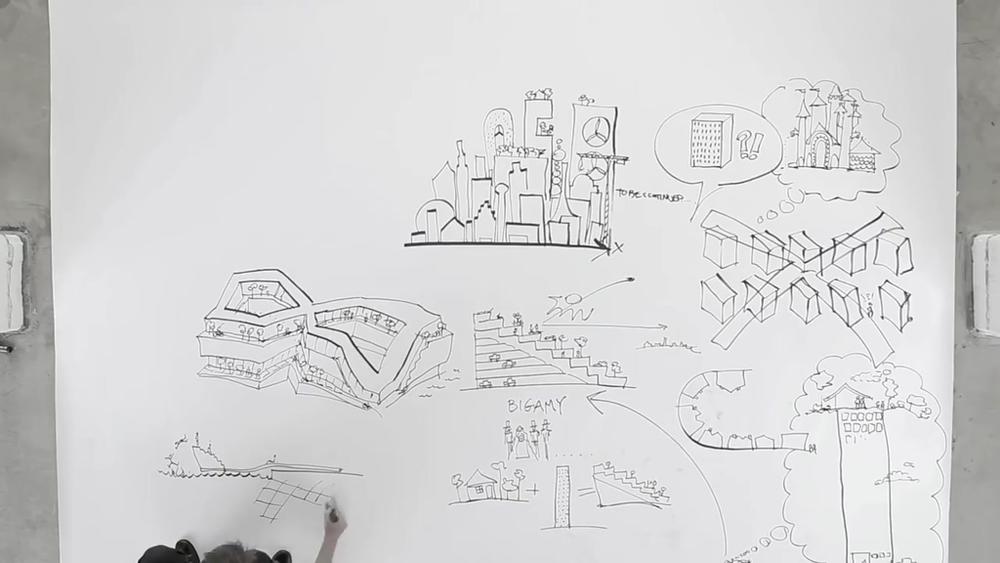 TO BE CONTINUED...
?!
X
BIGAMY